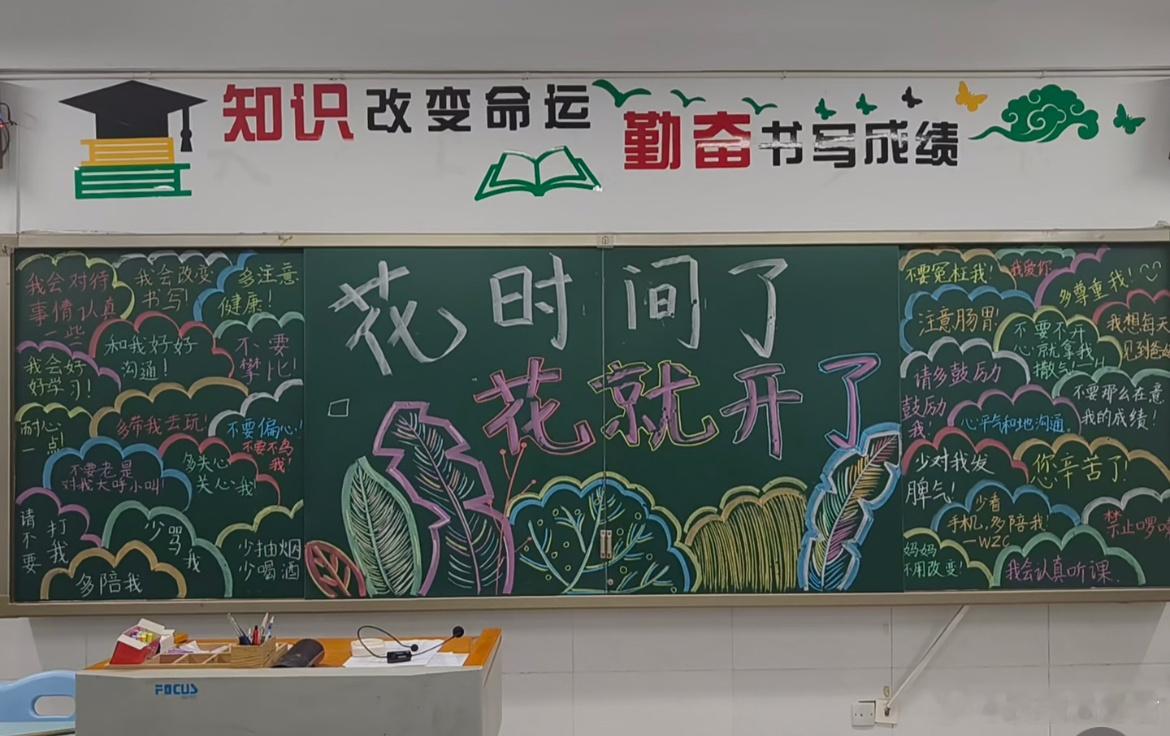 知识改变命运
勤奋书写成绩
我会对待
事情认真
一些
我会改变
书写!
多注意
健康!
和我好好
沟通!
不要
攀比!
我会好
好学习!
耐心
一点!
多带我去玩!
不要偏心!
不要不鸟
我!
不要老是
对我大呼小叫!
多关心
关心我!
请不要
打我
少骂
我
少抽烟
少喝酒
多陪我
花时间了
花就开了
不要冤枉我!
我爱你
多尊重我!
注意肠胃!
不要不开
心就拿我
撒气!
我想每天
见到爸
请多鼓励
鼓励
我!
心平气和地沟通
不要那么在意
我的成绩!
少对我发
脾气!
您辛苦了!
少看
手机,多陪我!
—WZC
禁止啰
妈妈
不用改变!
我会认真听课.
FOCUS